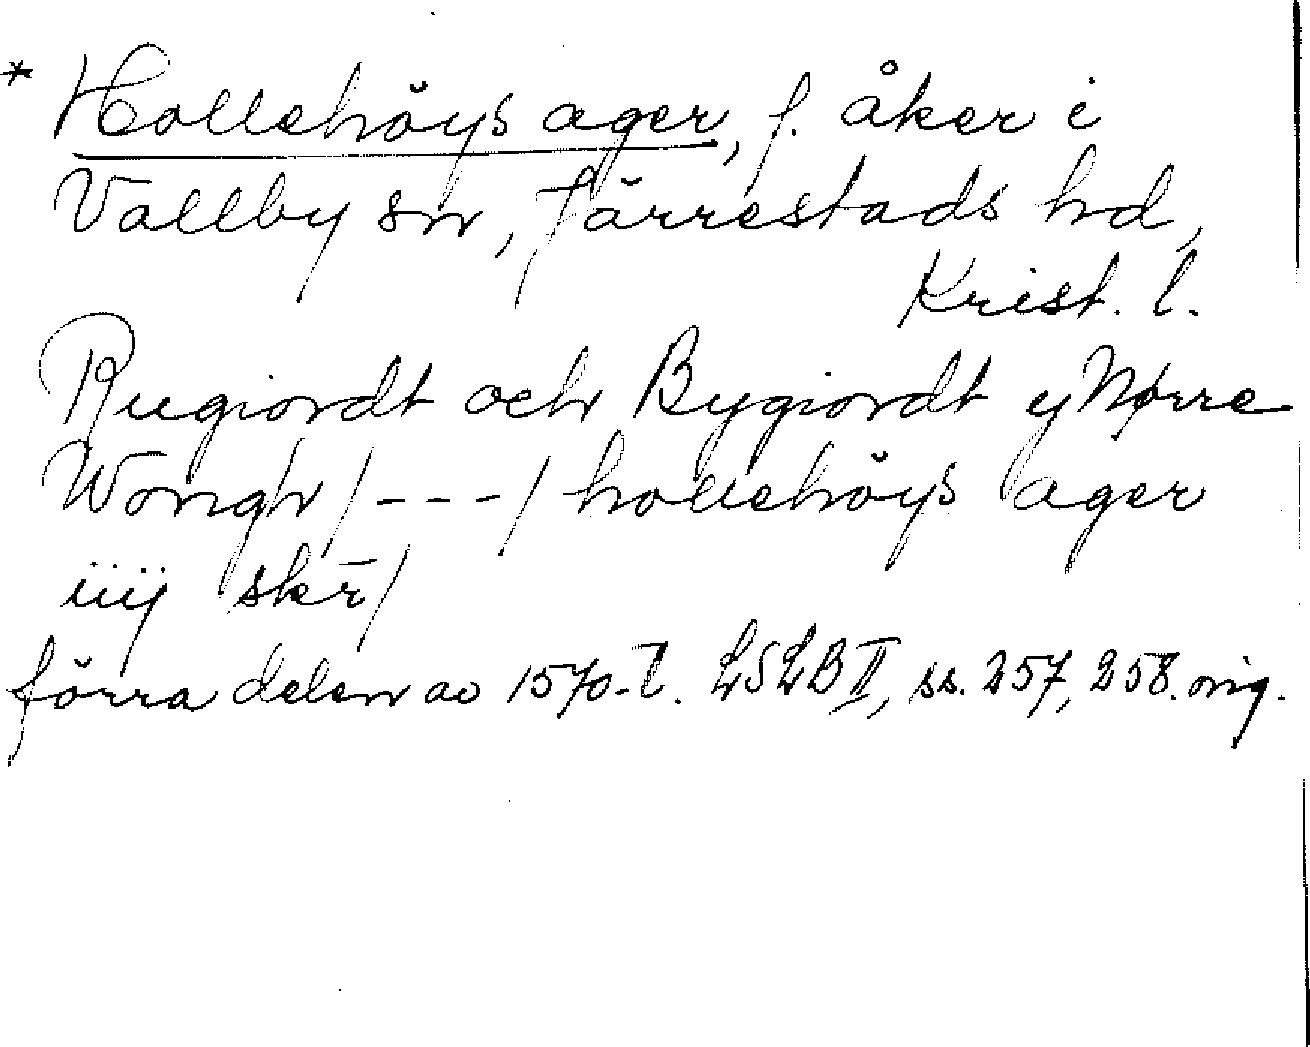 * Hollehöys ager, f. åker i
Vallby sn, Järrestads hd,
Krist. l.
Rugiordt och Bygiordt y Nørre
Wongh / - - - / hollehöys ager
iiij skr̄ /
förra delen av 1570-t. LSLB II, ss. 257, 258. orig.